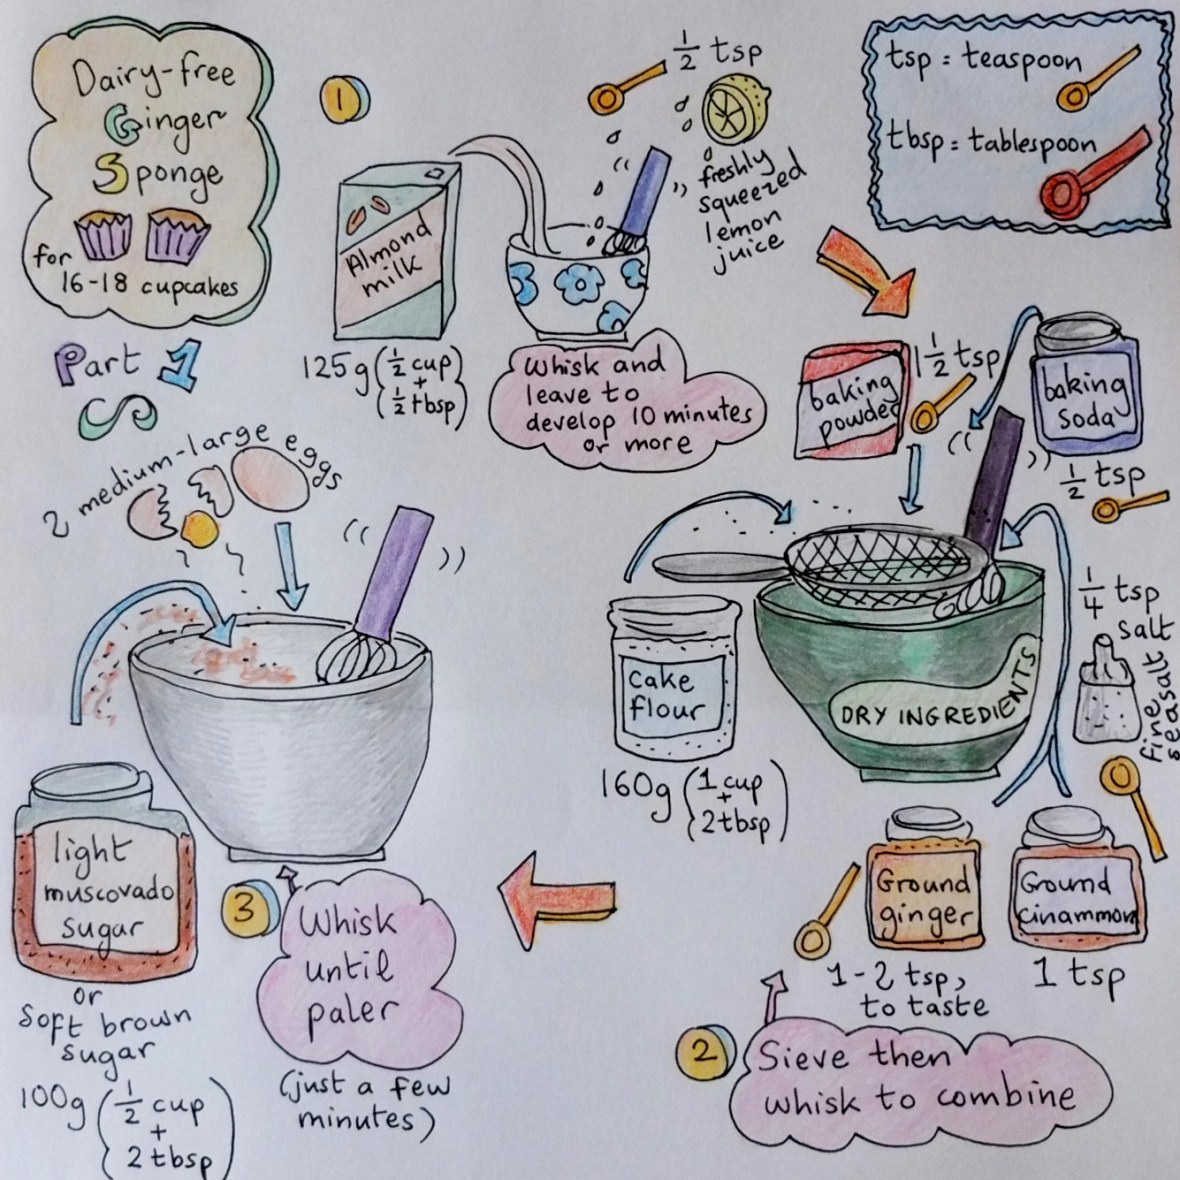 Dairy-free
Ginger
Sponge
for
16-18 cupcakes
Part 1
tsp = teaspoon
tbsp = tablespoon
1
1/2 tsp
freshly
squeezed
lemon
juice
Almond
milk
125g (1/2 cup
+
1/2 tbsp)
Whisk and
leave to
develop 10 minutes
or more
baking
powder
1 1/2 tsp
baking
soda
1/2 tsp
1/4 tsp
salt
fine
seasalt
cake
flour
160g (1 cup
+
2 tbsp)
DRY INGREDIENTS
Ground
ginger
1-2 tsp,
to taste
Ground
cinammon
1 tsp
2
Sieve then
whisk to combine
2 medium-large eggs
light
muscovado
sugar
or
soft brown
sugar
100g (1/2 cup
+
2 tbsp)
3
Whisk
until
paler
(just a few
minutes)